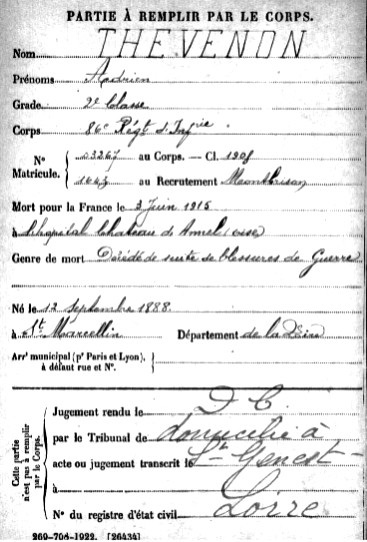 PARTIE À REMPLIR PAR LE CORPS.
Nom THEVENON
Prénoms Adrien
Grade 2e Classe
Corps 86e Régt d'Infie
N° Matricule. { 03267 au Corps. — Cl. 1908
1643 au Recrutement Montbrison
Mort pour la France le 3 Juin 1915
à L'hôpital Chateau d'Annel (oise)
Genre de mort Décédé de suite de blessures de Guerre
Né le 12 Septembre 1888.
à St Marcellin Département de la Loire
Arrt municipal (pr Paris et Lyon),
à défaut rue et N°.
Cette partie n'est pas à remplir par le Corps.
Jugement rendu le D C
par le Tribunal de domicilié à
acte ou jugement transcrit le St Genest-
à
N° du registre d'état civil Loire
269-708-1922. [26434]